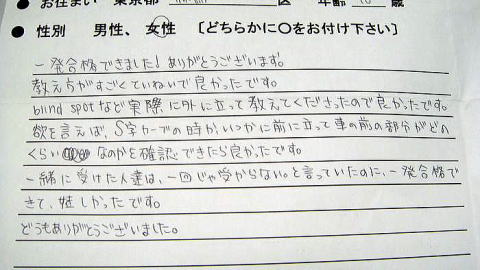 ● お住まい 東京都 区 年齢 歳
● 性別 男性、 女性 〔どちらかに○をお付け下さい〕
一発合格できました!ありがとうございます。
教え方がすごくていねいで良かったです。
blind spotなど実際に外に立って教えてくださったので良かったです。
欲を言えば、S字カーブの時か、いつかに前に立って車の前の部分がどの
くらい なのかを確認できたら良かったです。
一緒に受けた人達は、一回じゃ受からない。と言っていたのに、一発合格で
きて、嬉しかったです。
どうもありがとうございました。